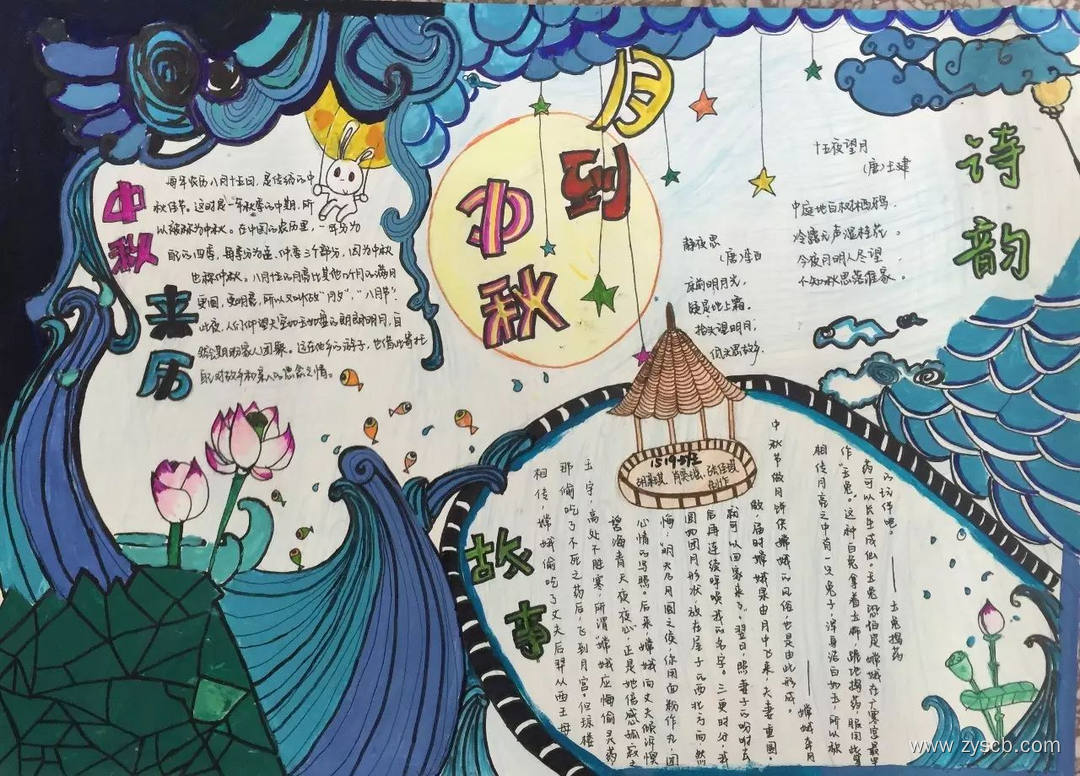 月到中秋
中秋来历
每年农历八月十五日，是传统的中
秋佳节。这时是一年秋季的中期，所
以被称为中秋。在中国的农历里，一年分为
四季，每季分为孟、仲、季三个部分，因为中秋
也称仲秋。八月十五的月亮比其他几个月的满月
更圆，更明亮，所以又叫做"月夕"，"八月节"。
此夜，人们仰望天空如玉如盘的朗朗明月，自
然会期盼家人团聚。远在他乡的游子，也借此寄托
自己对故乡和亲人的思念之情。
诗韵
十五夜望月
(唐)王建
中庭地白树栖鸦，
冷露无声湿桂花。
今夜月明人尽望，
不知秋思落谁家。
静夜思
(唐)李白
床前明月光，
疑是地上霜。
抬头望明月，
低头思故乡。
1519班
制作
故事
相传，嫦娥偷吃了丈夫后羿从西王母
那偷吃了不死之药后，飞到月宫。但琼楼
玉宇，高处不胜寒，所谓"嫦娥应悔偷灵药
碧海青天夜夜心"，正是她倍感孤寂之
心情的写照。后来，嫦娥向丈夫倾诉懊
悔：明天乃月圆之候，你用面粉作丸，团
团如圆月形状，放在屋子的西北方向，然
后再连续呼唤我的名字。三更时分，我
就可以回家来了。翌日，照妻子的吩咐去
做，届时嫦娥果由月中飞来，夫妻重圆，
中秋节做月饼供嫦娥的风俗也是由此形成。
——嫦娥奔月
相传月亮之中有一只兔子，浑身洁白如玉，所以被
作"玉兔"。这种白兔拿着玉杵，跪地捣药，服用此等
药可以长生成仙。玉兔恐怕是嫦娥在广寒宫最早
的玩伴吧。
——玉兔捣药
www.zyscb.com